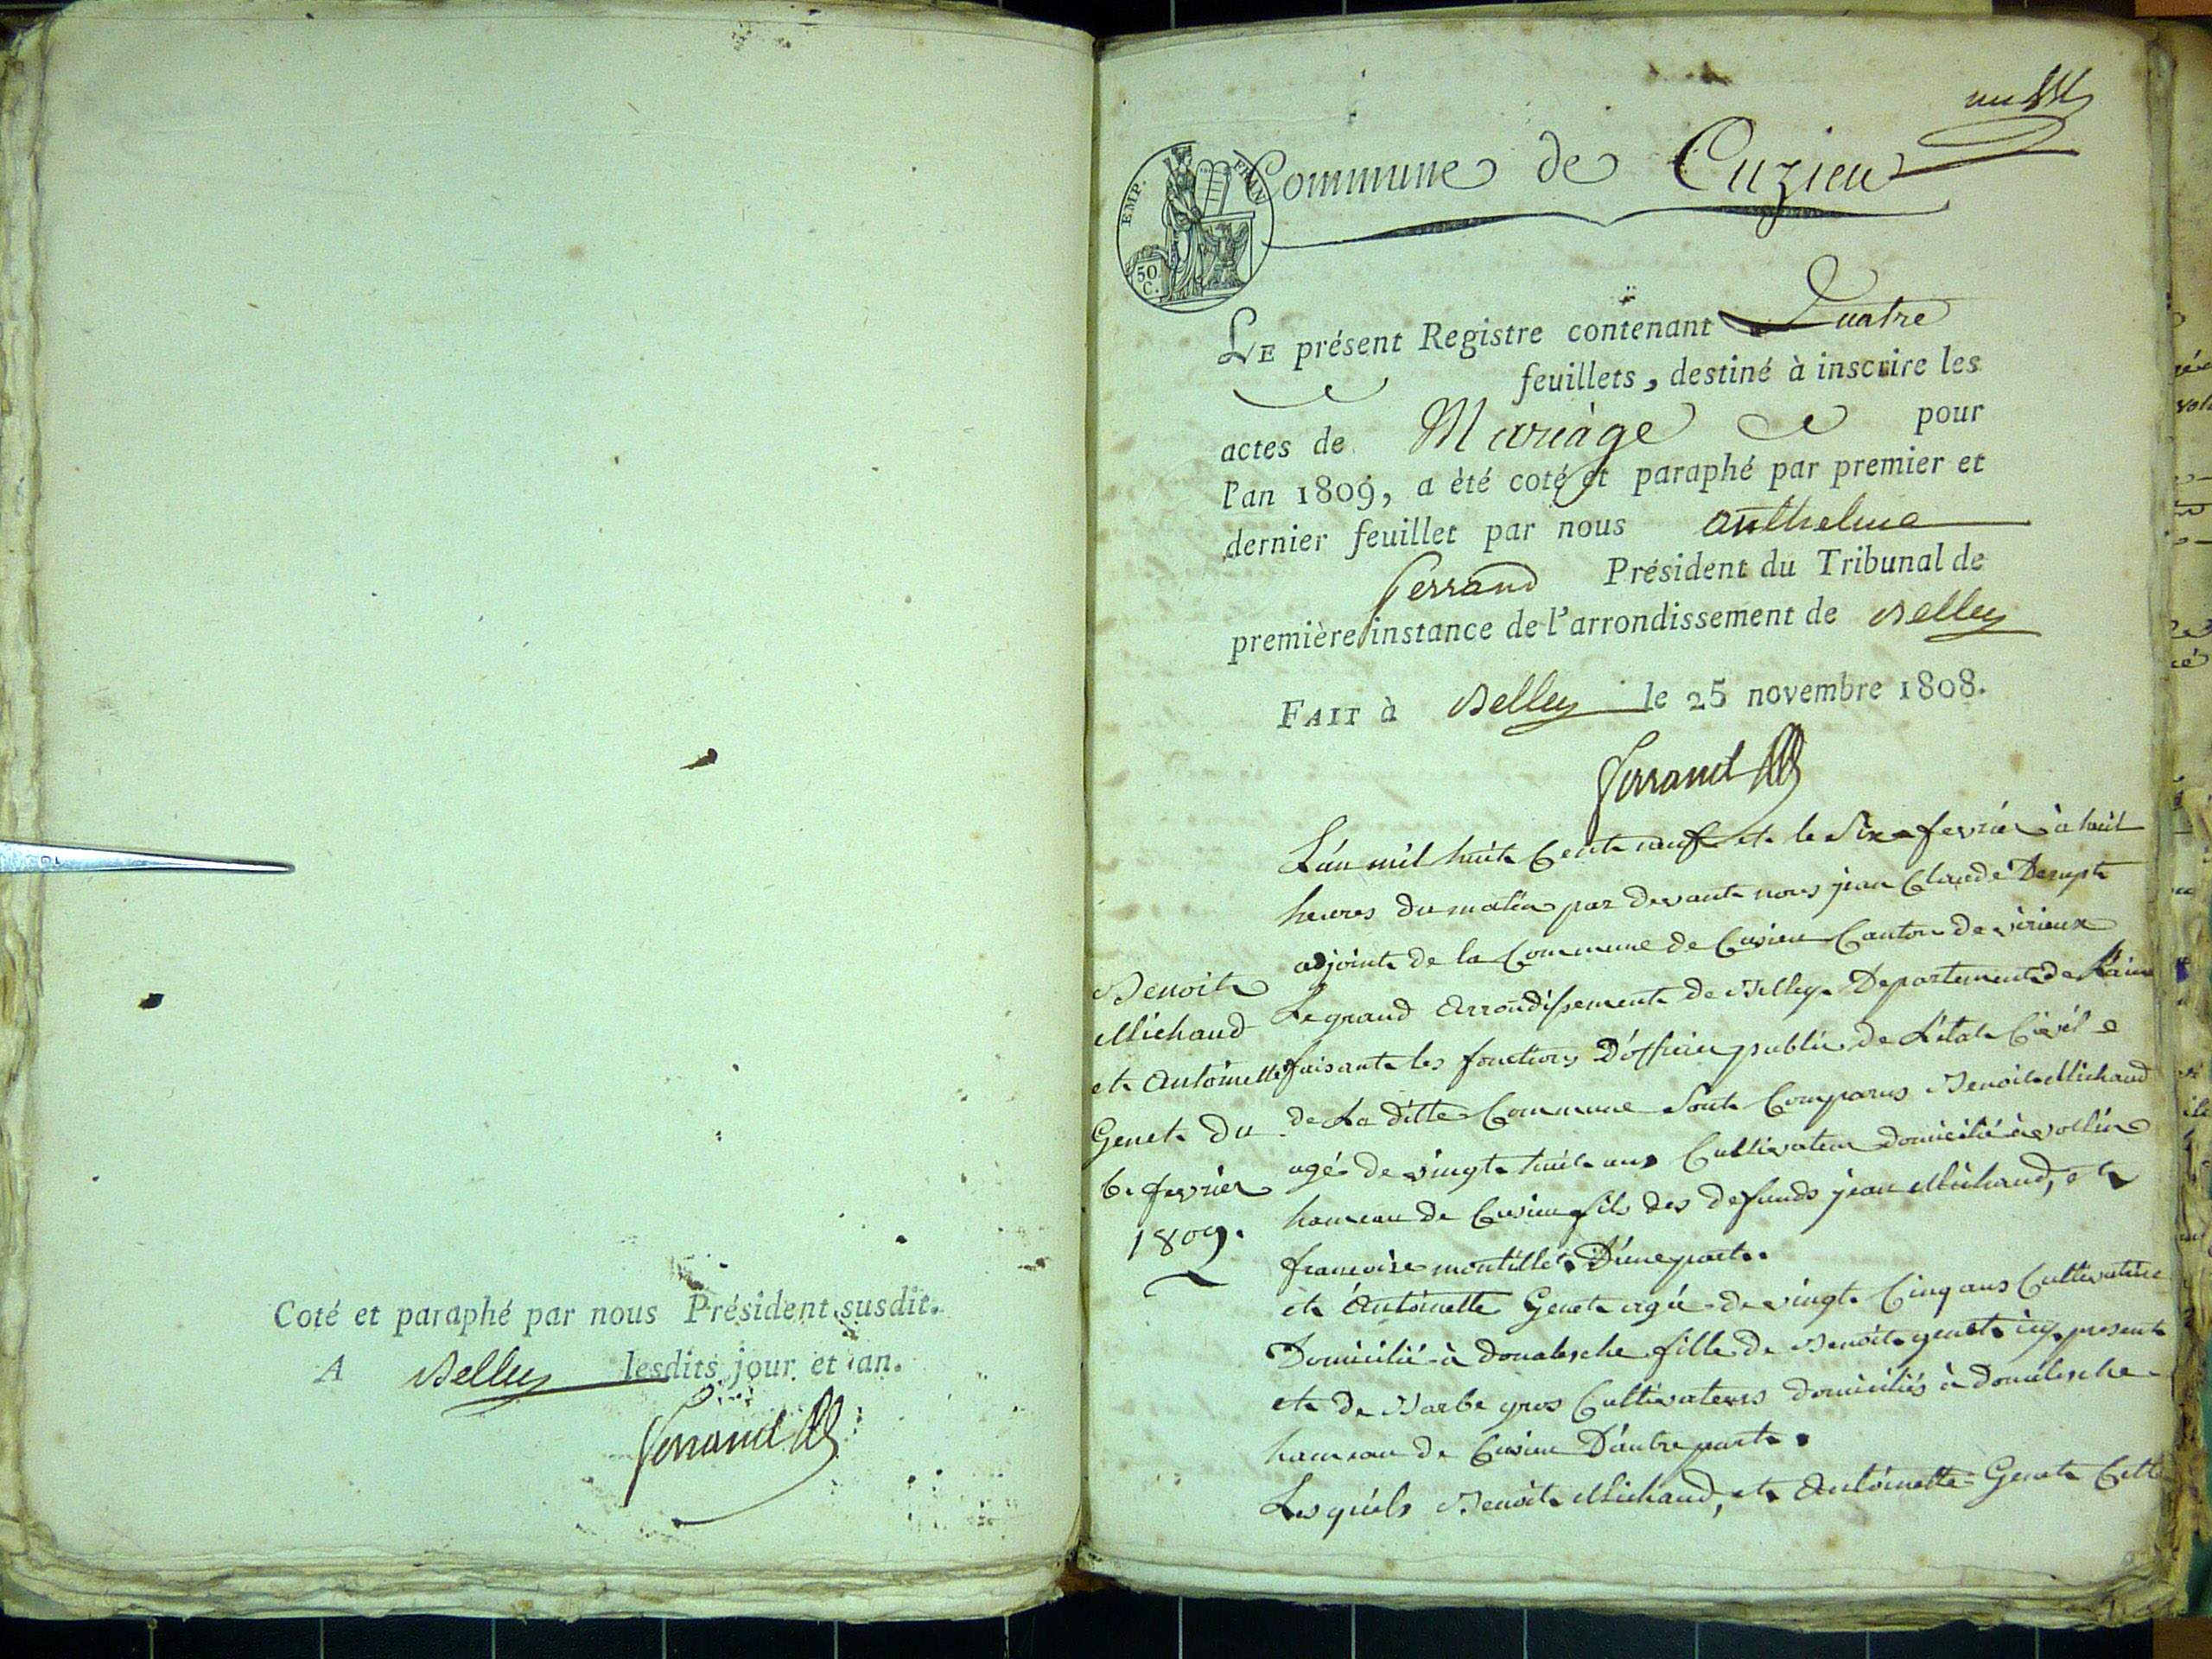 Coté et paraphé par nous Président susdit.
A Belley lesdits jour et an.
Ferrand
Commune de Cuzieu
EMP. FRAN
50
C.
LE présent Registre contenant Quatre
feuillets, destiné à inscrire les
actes de Mariage pour
l'an 1809, a été coté et paraphé par premier et
dernier feuillet par nous anthelme
ferrand Président du Tribunal de
première instance de l'arrondissement de Belley
FAIT à Belley le 25 novembre 1808.
Ferrand
Benoit
Michaud
et Antoinette
Genet du
6. fevrier
1809.
L'an mil huit Cent neuf et le Six fevrier à huit
heures du matin par devant nous jean Claude
adjoint de la Commune de Cusieu Canton de virieux
Le grand Arrondissement de Belley Departement de L'ain
faisant les fonctions D'officier public de L'état Civil
de La ditte Commune Sont Comparus Benoit Michaud
agé de vingt huit ans Cultivateur domicilié à vollin
hameau de Cusieu fils des defunds jean Michaud, et
francoise montillet D'une part.
et Antoinette Genet agée de vingt Cinq ans Cultivatrice
Domicilié à fille de Benoit genet icy present
et de Barbe gros Cultivateurs domiciliés à
hameau de Cusieu D'autre part.
Lesquels Benoit Michaud, et Antoinette Genet Cette